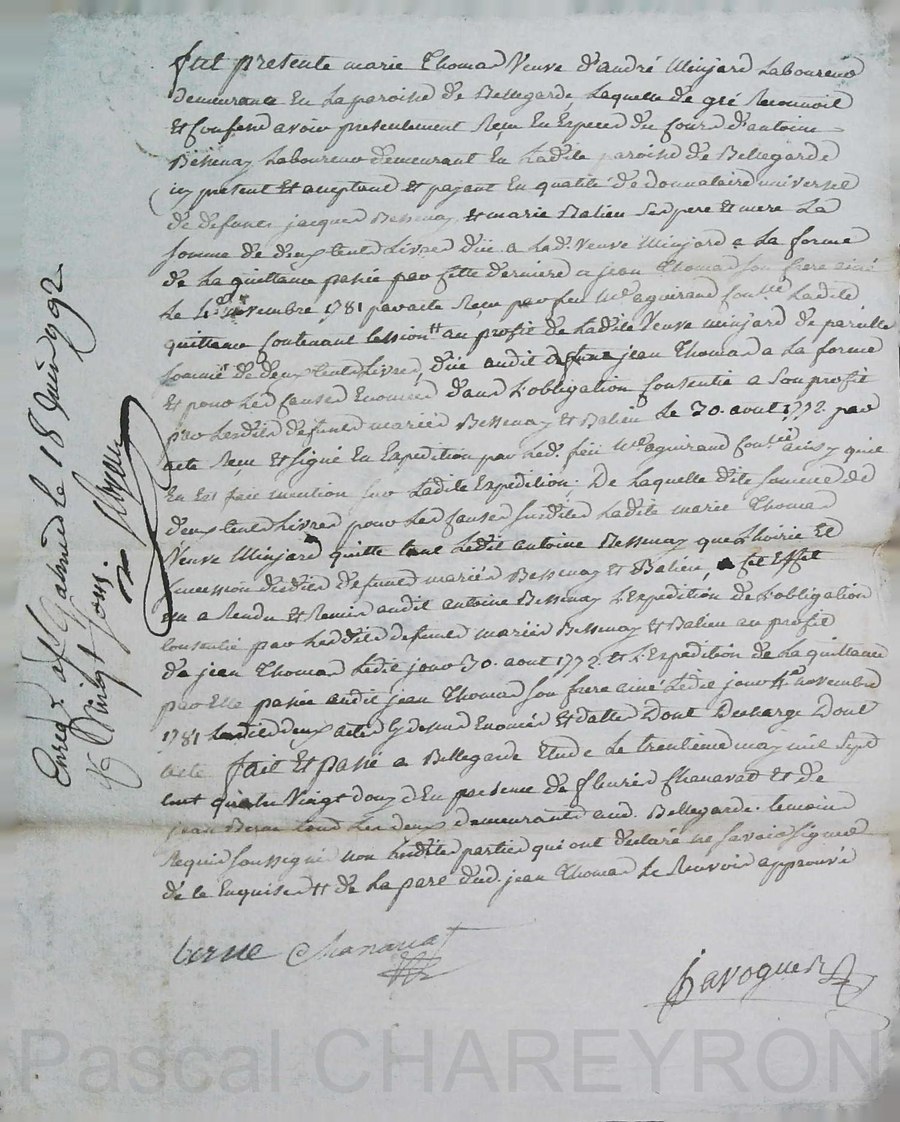 fut presente marie Thomas Veuve d'andré Minjard Laboureur
demeurante En La paroisse de Bellegarde, Laquelle de gré Reconnoit
Et Confesse avoir presentement Reçu En Especes du cours d'antoine
Bessenay Laboureur demeurant En Ladite paroisse de Bellegarde
icy present Et acceptant Et payant En qualité de donnataire universel
de defunts jacques Bessenay et marie Balieu Ses pere Et mere La
somme de deux Cents Livres düe a Lad. Veuve Minjard a La forme
de La quittance passée par Cette derniere a jean Thomas son frere ainé
Le 4e novembre 1781 par acte Reçu par feu Me aguiraud Ladite
quittance Contenant Cession # au profit de Ladite Veuve minjard de pareille
somme de deux Cents Livres, düe audit jean Thomas a La forme
Et pour Les Causes Enoncées dans L'obligation Consentie a Son profit
par Lesdits defunts mariés Bessenay Et Balieu Le 30. aout 1772. par
acte Reçu Et signé En Expedition par Led. feu Me aguiraud ainsy quil
En Est fait mention sur Ladite Expedition. De Laquelle dite somme de
deux Cents Livres pour Les Causes Susdites Ladite marie Thomas
Veuve Minjard quitte tant Ledit antoine Bessenay que L'hoirie Et
succession desdits defunts mariés Bessenay Et Balieu, a Cet Effet
Elle a Rendu Et Remis audit antoine Bessenay L'Expedition de L'obligation
Consentie par Lesdits defunts mariés Bessenay Et Balieu au profit
de jean Thomas Ledit jour 30. aout 1772. et L'Expedition de La quittance
par Elle passée audit jean Thomas son frere ainé Ledit jour 4e novembre
1781 Lesdits deux actes Cy dessus Enoncés Et dattés Dont Decharge Dont
acte fait Et passé a Bellegarde Etude Le trentieme may mil Sept
Cent quatre Vingt douze En presence de fleurie Chanavat Et de
jean Verne tous Les deux demeurants aud. Bellegarde. temoins
Requis soussignés non Lesdites parties qui ont declaré ne savoir signer
de ce Enquises # de La part dud. jean Thomas Le Renvoir approuvé
verne Chanavat
Javogues
Enreg. à St Galmier le 18 Juin 1792
Vingt Sous.
Pascal CHAREYRON